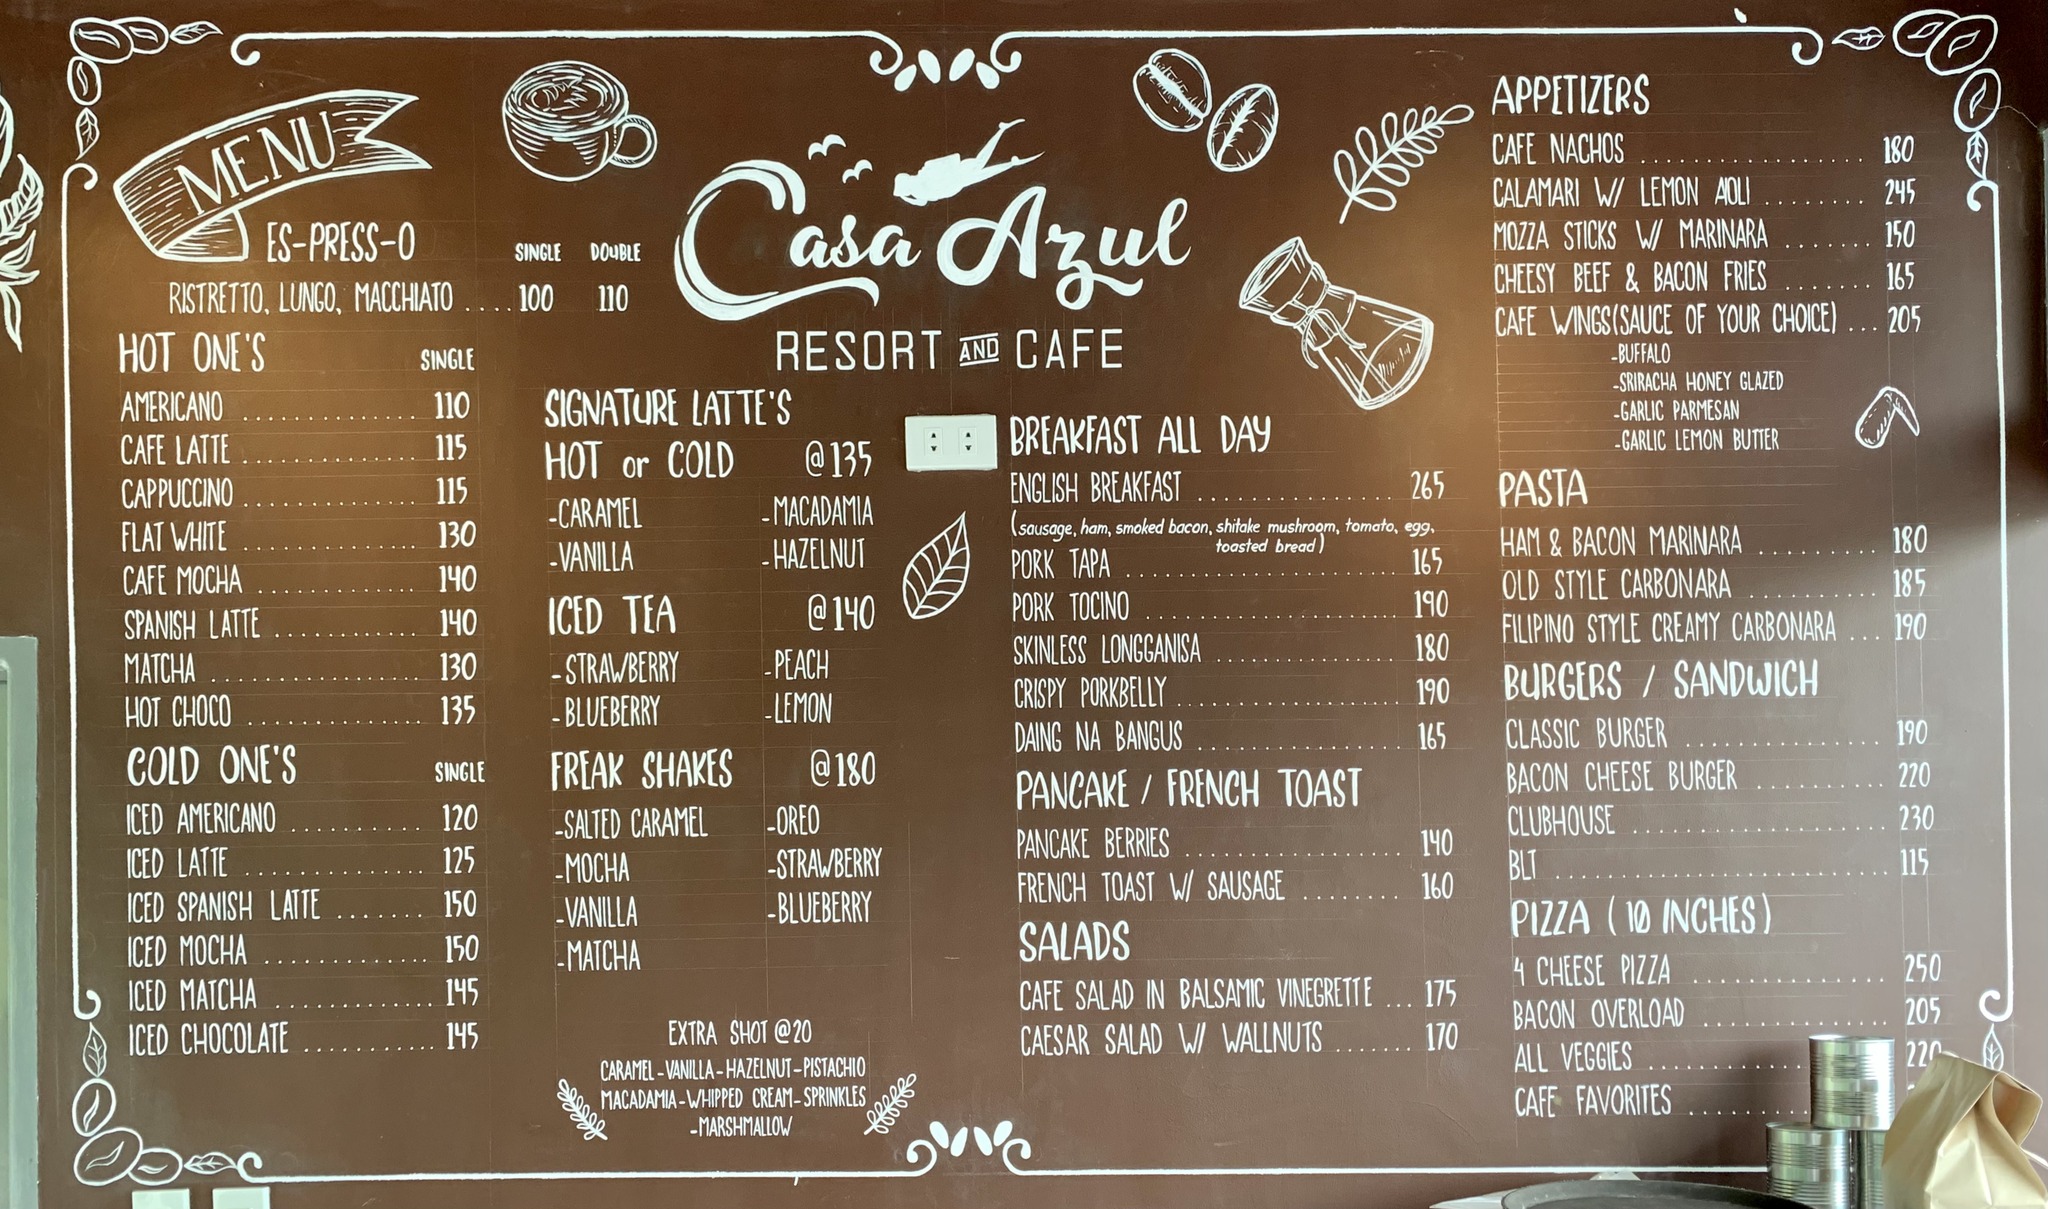 MENU
ES-PRESS-O SINGLE DOUBLE
RISTRETTO, LUNGO, MACCHIATO .... 100 110
HOT ONE'S SINGLE
AMERICANO ................ 110
CAFE LATTE ............... 115
CAPPUCCINO ............... 115
FLAT WHITE ............... 130
CAFE MOCHA ............. 140
SPANISH LATTE ............ 140
MATCHA .................. 130
HOT CHOCO ............... 135
COLD ONE'S SINGLE
ICED AMERICANO ........... 120
ICED LATTE ............... 125
ICED SPANISH LATTE ....... 150
ICED MOCHA ............. 150
ICED MATCHA ............. 145
ICED CHOCOLATE ........... 145
Casa Azul
RESORT AND CAFE
SIGNATURE LATTE'S
HOT or COLD @135
-CARAMEL -MACADAMIA
-VANILLA -HAZELNUT
ICED TEA @140
-STRAWBERRY -PEACH
-BLUEBERRY -LEMON
FREAK SHAKES @180
-SALTED CARAMEL -OREO
-MOCHA -STRAWBERRY
-VANILLA -BLUEBERRY
-MATCHA
EXTRA SHOT @20
CARAMEL-VANILLA-HAZELNUT-PISTACHIO
MACADAMIA-WHIPPED CREAM-SPRINKLES
-MARSHMALLOW
BREAKFAST ALL DAY
ENGLISH BREAKFAST ................ 265
(sausage, ham, smoked bacon, shitake mushroom, tomato, egg,
toasted bread)
PORK TAPA ...................... 165
PORK TOCINO .................... 190
SKINLESS LONGGANISA .............. 180
CRISPY PORKBELLY ................. 190
DAING NA BANGUS ................. 165
PANCAKE / FRENCH TOAST
PANCAKE BERRIES .................. 140
FRENCH TOAST W/ SAUSAGE ......... 160
SALADS
CAFE SALAD IN BALSAMIC VINEGRETTE ... 175
CAESAR SALAD W/ WALLNUTS ....... 170
APPETIZERS
CAFE NACHOS .................. 180
CALAMARI W/ LEMON AIOLI ........ 245
MOZZA STICKS W/ MARINARA ....... 150
CHEESY BEEF & BACON FRIES ....... 165
CAFE WINGS(SAUCE OF YOUR CHOICE) ... 205
-BUFFALO
-SRIRACHA HONEY GLAZED
-GARLIC PARMESAN
-GARLIC LEMON BUTTER
PASTA
HAM & BACON MARINARA ......... 180
OLD STYLE CARBONARA .......... 185
FILIPINO STYLE CREAMY CARBONARA ... 190
BURGERS / SANDWICH
CLASSIC BURGER ................ 190
BACON CHEESE BURGER ........... 220
CLUBHOUSE .................... 230
BLT ............................ 115
PIZZA (10 INCHES)
4 CHEESE PIZZA ................. 250
BACON OVERLOAD ............... 205
ALL VEGGIES ............ 220
CAFE FAVORITES .........